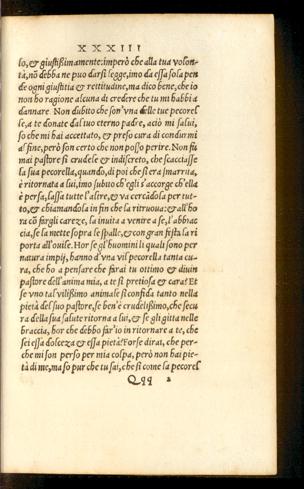 XXXIII
lo, & giustißimamente: imperò che alla tua volon-
tà, nõ debba ne puo darsi legge, imo da essa sola pen
de ogni giustitia & rettitudine, ma dico bene, che io
non ho ragione alcuna di credere che tu mi habbi a
dannare. Non dubito che son'vna delle tue pecorel
le, a te donate dal tuo eterno padre, aciò mi salui,
so che mi hai accettato, & preso cura di condurmi
al fine, però son certo che non posso perire. Non fu
mai pastore sì crudele & indiscreto, che scacciasse
la sua pecorella, quando, di poi che si era smarrita,
è ritornata a lui, imo subito ch'egli s'accorge ch'ella
è persa, lassa tutte l'altre, & va cercãdola per tut-
to, & chiamandola in fin che la ritruoua: & all'ho
ra cõ fargli careze, la inuita a venire a se, l'abbrac
cia, se la mette sopra le spalle, & con gran festa la ri
porta all'ouile. Hor se gl'huomini li quali sono per
natura impij, hanno d'vna vil pecorella tanta cu-
ra, che ho a pensare che farai tu ottimo & diuin
pastore dell'anima mia, a te sì pretiosa & cara? Et
se vno tal vilißimo animale si confida tanto nella
pietà del suo pastore, se ben'è crudelißimo, che secu
ra della sua salute ritorna a lui, & se gli gitta nelle
braccia, hor che debbo far'io in ritornare a te, che
sei essa dolceza & essa pietà? Forse dirai, che per-
che mi son perso per mia colpa, però non hai pie-
tà di me, ma so pur che tu sai, che sì come la pecorel
Qqq 2